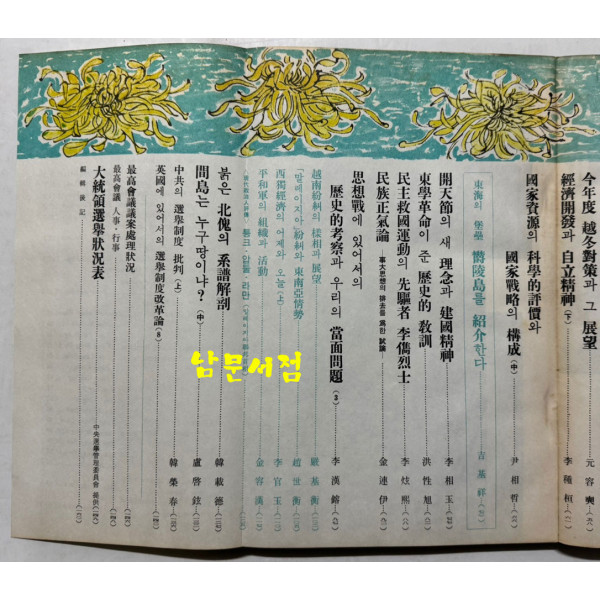 今年度 越冬對策과 그 展望 元容奭
經濟開發과 自立精神 (下) 李種桓
國家資源의 科學的評價와
國家戰略의 構成 (中) 尹相哲
東海의 堡壘 鬱陵島를 紹介한다 吉基祥
開天節의 새 理念과 建國精神 李相玉
東學革命이 준 歷史的 敎訓 洪性旭
民主救國運動의 先驅者 李儁烈士 李炫熙
民族正氣論 —事大思想의 排去를 爲한 試論— 金連伊
思想戰에 있어서의
歷史的考察과 우리의 當面問題 (3) 李漢鎔
越南紛糾의 樣相과 展望 嚴基衡
「말레이지아」紛糾와 東南亞情勢 趙世衡
西獨經濟의 어제와 오늘 (上) 李官玉
平和軍의 組織과 活動 金容漢
現代政治人評傳 · 툰크 · 압둘 · 라만
붉은 北傀의 系譜解剖 韓載德
間島는 누구땅이냐? (中) 盧啓鉉
中共의 選擧制度 批判 (上)
英國에 있어서의 選擧制度改革論 (8) 韓榮春
最高會議議案處理狀況
最高會議 人事・行事
大統領選擧狀況表 中央選擧管理委員會 提供
編輯後記
남문서점